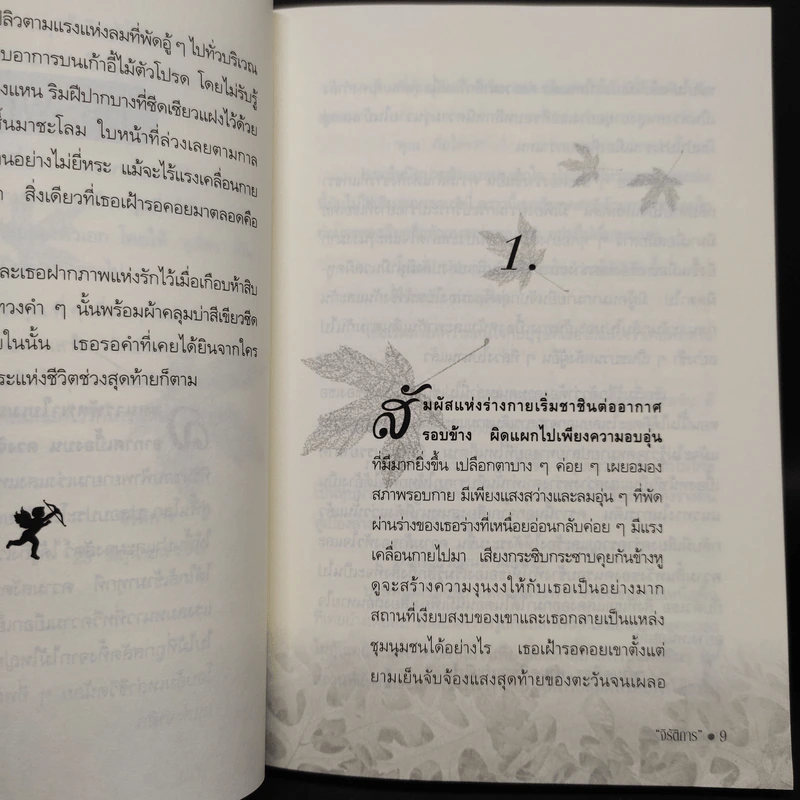 ปลิวตามแรงแห่งลมที่พัดอู้ ๆ ไปทั่วบริเวณ
บอาการบนเก้าอี้ไม้ตัวโปรด โดยไม่รับรู้
งแหน ริมฝีปากบางที่ซีดเซียวแฝงไว้ด้วย
ขึ้นมาชะโลม ใบหน้าที่ล่วงเลยตามกาล
นอย่างไม่ยี่หระ แม้จะไร้แรงเคลื่อนกาย
า สิ่งเดียวที่เธอเฝ้ารอคอยมาตลอดคือ
ละเธอฝากภาพแห่งรักไว้เมื่อเกือบห้าสิบ
ทวงคำ ๆ นั้นพร้อมผ้าคลุมบ่าสีเขียวซีด
ยในนั้น เธอรอคำที่เคยได้ยินจากใคร
ระแห่งชีวิตช่วงสุดท้ายก็ตาม
1.
สัมผัสแห่งร่างกายเริ่มชาชินต่ออากาศ
รอบข้าง ผิดแผกไปเพียงความอบอุ่น
ที่มีมากยิ่งขึ้น เปลือกตาบาง ๆ ค่อย ๆ เผยอมอง
สภาพรอบกาย มีเพียงแสงสว่างและลมอุ่น ๆ ที่พัด
ผ่านร่างของเธอร่างที่เหนื่อยอ่อนกลับค่อย ๆ มีแรง
เคลื่อนกายไปมา เสียงกระซิบกระซาบคุยกันข้างหู
ดูจะสร้างความงุนงงให้กับเธอเป็นอย่างมาก
สถานที่เงียบสงบของเขาและเธอกลายเป็นแหล่ง
ชุมนุมชนได้อย่างไร เธอเฝ้ารอคอยเขาตั้งแต่
ยามเย็นจับจ้องแสงสุดท้ายของตะวันจนเผลอ
"จิรัติการ" ● 9